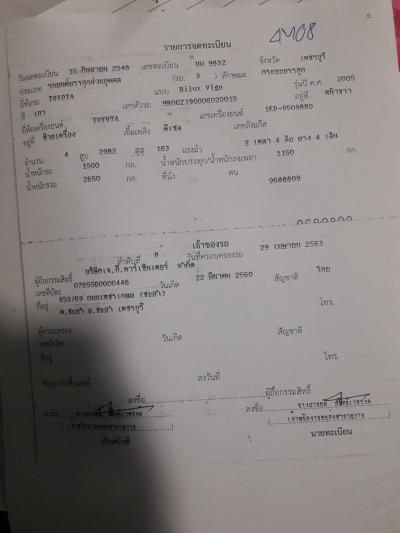 6
4408
รายการจดทะเบียน
วันจดทะเบียน 15 กันยายน 2548 เลขทะเบียน บม 9832 จังหวัด เพชรบุรี
ประเภท รถยนต์บรรทุกส่วนบุคคล (รย. 3 ) ลักษณะ กระบะบรรทุก
ยี่ห้อรถ TOYOTA แบบ Hilux Vigo รุ่นปี ค.ศ. 2005
สี เทา เลขตัวรถ MR0GZ19G006020015 อยู่ที่
ยี่ห้อเครื่องยนต์ TOYOTA เลขเครื่องยนต์ 1KD-9509880
อยู่ที่ ซ้ายเครื่อง เชื้อเพลิง ดีเซล เลขถังแก๊ส
จำนวน 4 สูบ 2982 ซีซี 163 แรงม้า 2 เพลา 4 ล้อ ยาง 4 เส้น
น้ำหนักรถ 1500 กก. น้ำหนักบรรทุก/น้ำหนักลงเพลา 1150 กก.
น้ำหนักรวม 2650 กก. ที่นั่ง คน
9688809
เจ้าของรถ
ลำดับที่ 8 วันที่ครอบครองรถ 29 เมษายน 2563
ผู้ถือกรรมสิทธิ์
เลขที่บัตร 0765560000446 วันเกิด 22 มีนาคม 2560 สัญชาติ ไทย
ที่อยู่ 653/69 ถนนเพชรเกษม (ชะอำ)
ต.ชะอำ อ.ชะอำ เพชรบุรี โทร.
ผู้ครอบครอง
เลขที่บัตร วันเกิด สัญชาติ
ที่อยู่ โทร.
สัญญาเช่าซื้อเลขที่ ลงวันที่
ลงชื่อ ผู้ถือกรรมสิทธิ์
ลงชื่อ ลงชื่อ
เจ้าหน้าที่ นายทะเบียน